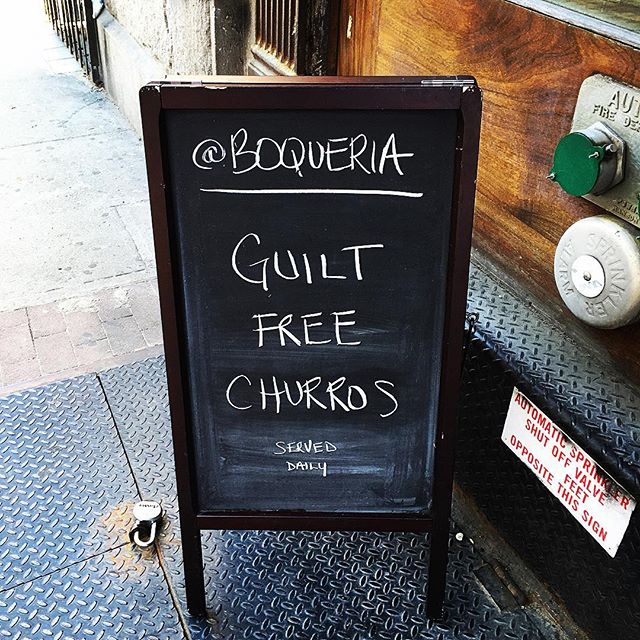 @BOQUERIA
GUILT
FREE
CHURROS
SERVED
DAILY
AUTO
FIRE DE
SPRINKLER
ALARM
AUTOMATIC SPRINKLER
SHUT OFF VALVE
FEET
OPPOSITE THIS SIGN